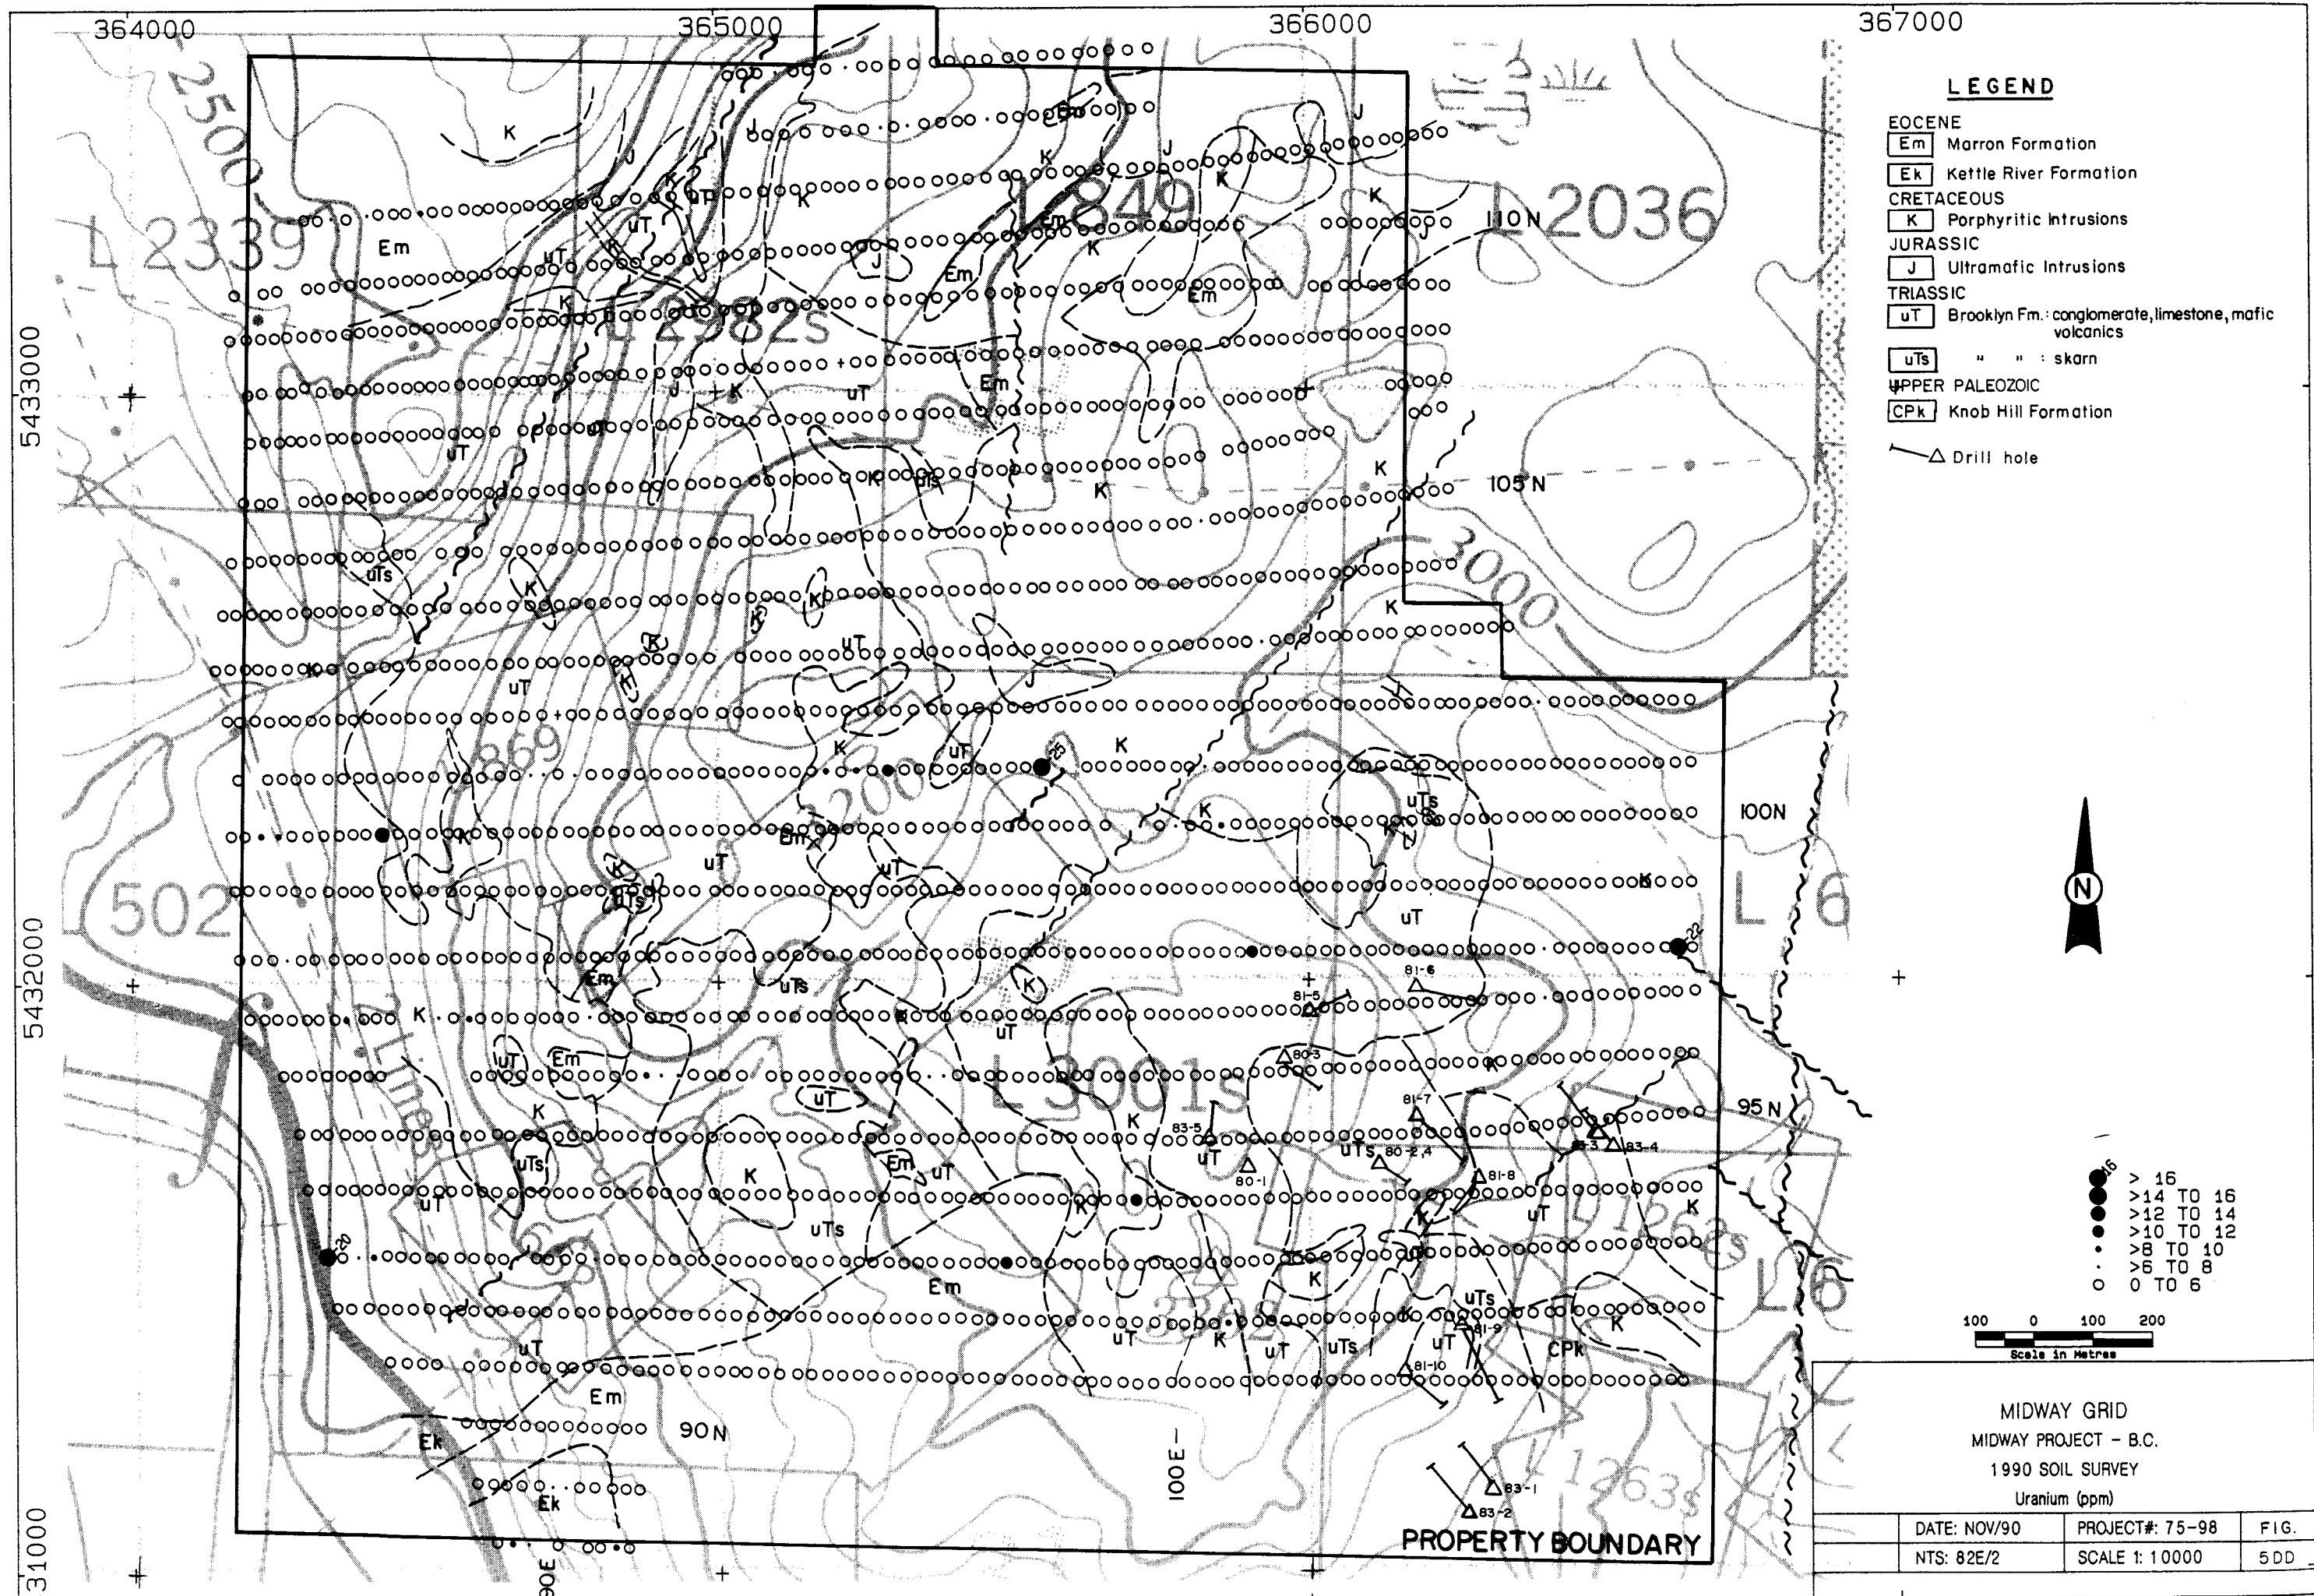 364000 365000 366000 367000
LEGEND
EOCENE
Em Marron Formation
Ek Kettle River Formation
CRETACEOUS
K Porphyritic Intrusions
JURASSIC
J Ultramafic Intrusions
TRIASSIC
uT Brooklyn Fm.: conglomerate, limestone, mafic
volcanics
uTs " " : skarn
UPPER PALEOZOIC
CPk Knob Hill Formation
Drill hole
5433000
5432000
31000
2500
L 2339
L 849
L 2036
L 2982s
3000
869
502
L 3001s
L 1263s
L 1263s
L 6
L 6
110N
105N
100N
95N
90N
100E
90E
K
J
Em
uT
uTs
Ek
CPk
25
22
20
81-6
81-5
80-3
81-7
83-5
80-2,4
80-1
81-8
83-4
81-9
81-10
83-1
83-2
PROPERTY BOUNDARY
N
16
> 16
>14 TO 16
>12 TO 14
>10 TO 12
>8 TO 10
>6 TO 8
0 TO 6
100 0 100 200
Scale in Metres
MIDWAY GRID
MIDWAY PROJECT - B.C.
1990 SOIL SURVEY
Uranium (ppm)
DATE: NOV/90 PROJECT#: 75-98 FIG.
NTS: 82E/2 SCALE 1: 10000 5DD